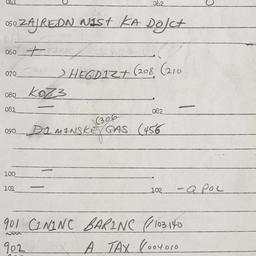 061 062
050 ZAJREDN NIST KA DOJCT
060 +
070 > HEGDIZT (208 (210
080 KOZ3
081 — 082 —
(306
090 DIMINSKE/GAS (456
100 —
101 — 102 - Q POL
901 CININC BARINC (/103140
902 A TAX (/004010